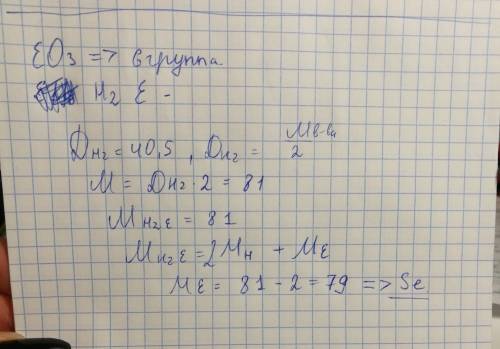 EO₃ => 6 группа
H₂ E -
D_H₂ = 40,5 , D_H₂ = Mв-ва / 2
M = D_H₂ · 2 = 81
M_H₂E = 81
M_H₂E = 2M_H + M_E
M_E = 81 - 2 = 79 => Se